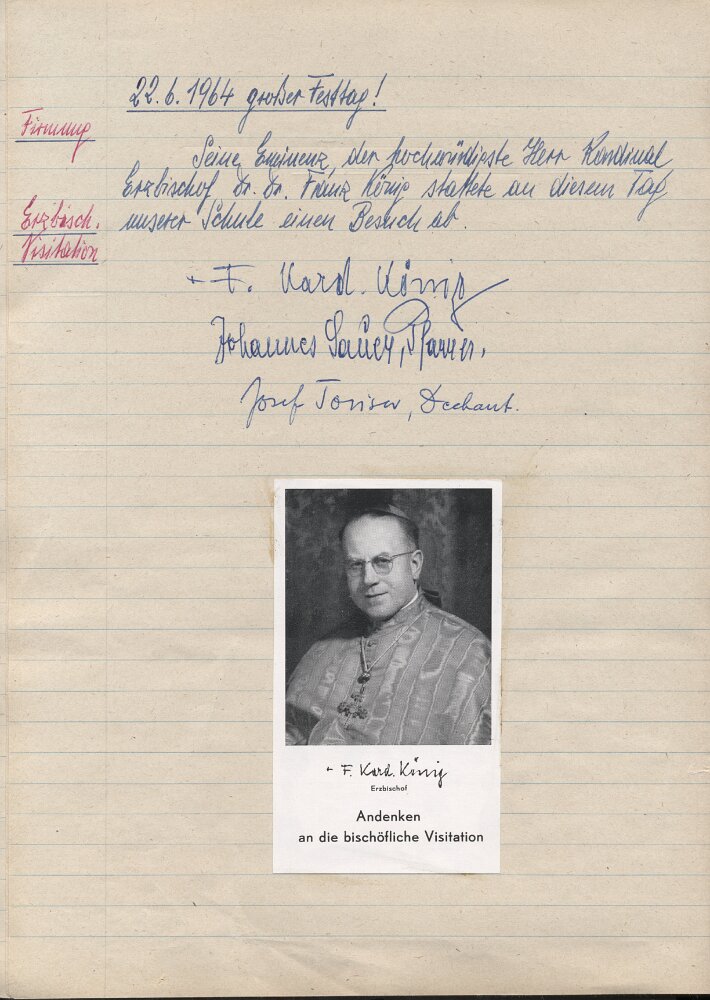 22.6.1964 großer Festtag!
Firmung
Seine Eminenz, der hochwürdigste Herr Kardinal
Erzbischof Dr. Dr. Franz König stattete an diesem Tag
Erzbisch.
unserer Schule einen Besuch ab.
Visitation
+ F. Kard. König
Johannes Sauer, Pfarrer.
Josef Toriser, Dechant.
+ F. Kard. König
Erzbischof
Andenken
an die bischöfliche Visitation